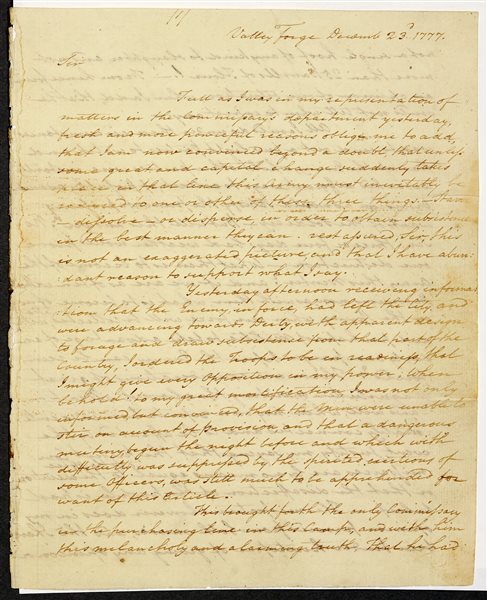 (1)
Valley Forge Decemb 23ᵈ. 1777.
Sir
Full as I was in my representation of
matters in the Commissary's departmint yesterday,
fresh and more powerful reasons oblige me to add,
that I am now convinced beyond a doubt, that unless
some great and capital change suddenly takes
place in that line this army must inevitably be
reduced to one or other of these three things. - Starve
- dissolve - or disperse, in order to obtain subsistence
in the best manner they can. rest assured, Sir, this
is not an exaggerated picture, and that I have abun
:dant reason to support what I say.
Yesterday afternoon receiving informa
:tion that the Enemy, in force, had left the City, and
were advancing towards Derby, with apparent design
to forage and draw subsistence from that part of the
Country, I ordered the Troops to be in readiness, that
I might give every Opposition in my power; when
behold! to my great mortification, I was not only
informed but convinced, that the men were unable to
stir on account of provision, and that a dangerous
mutiny, begun the night before and which with
difficulty was suppressed by the spirited exertions of
some Officers, was still much to be apprehended for
want of this Article.
This brought forth the only Commissary
in the purchasing line in this Camp, and with him
this melancholy and alarming truth, that he had